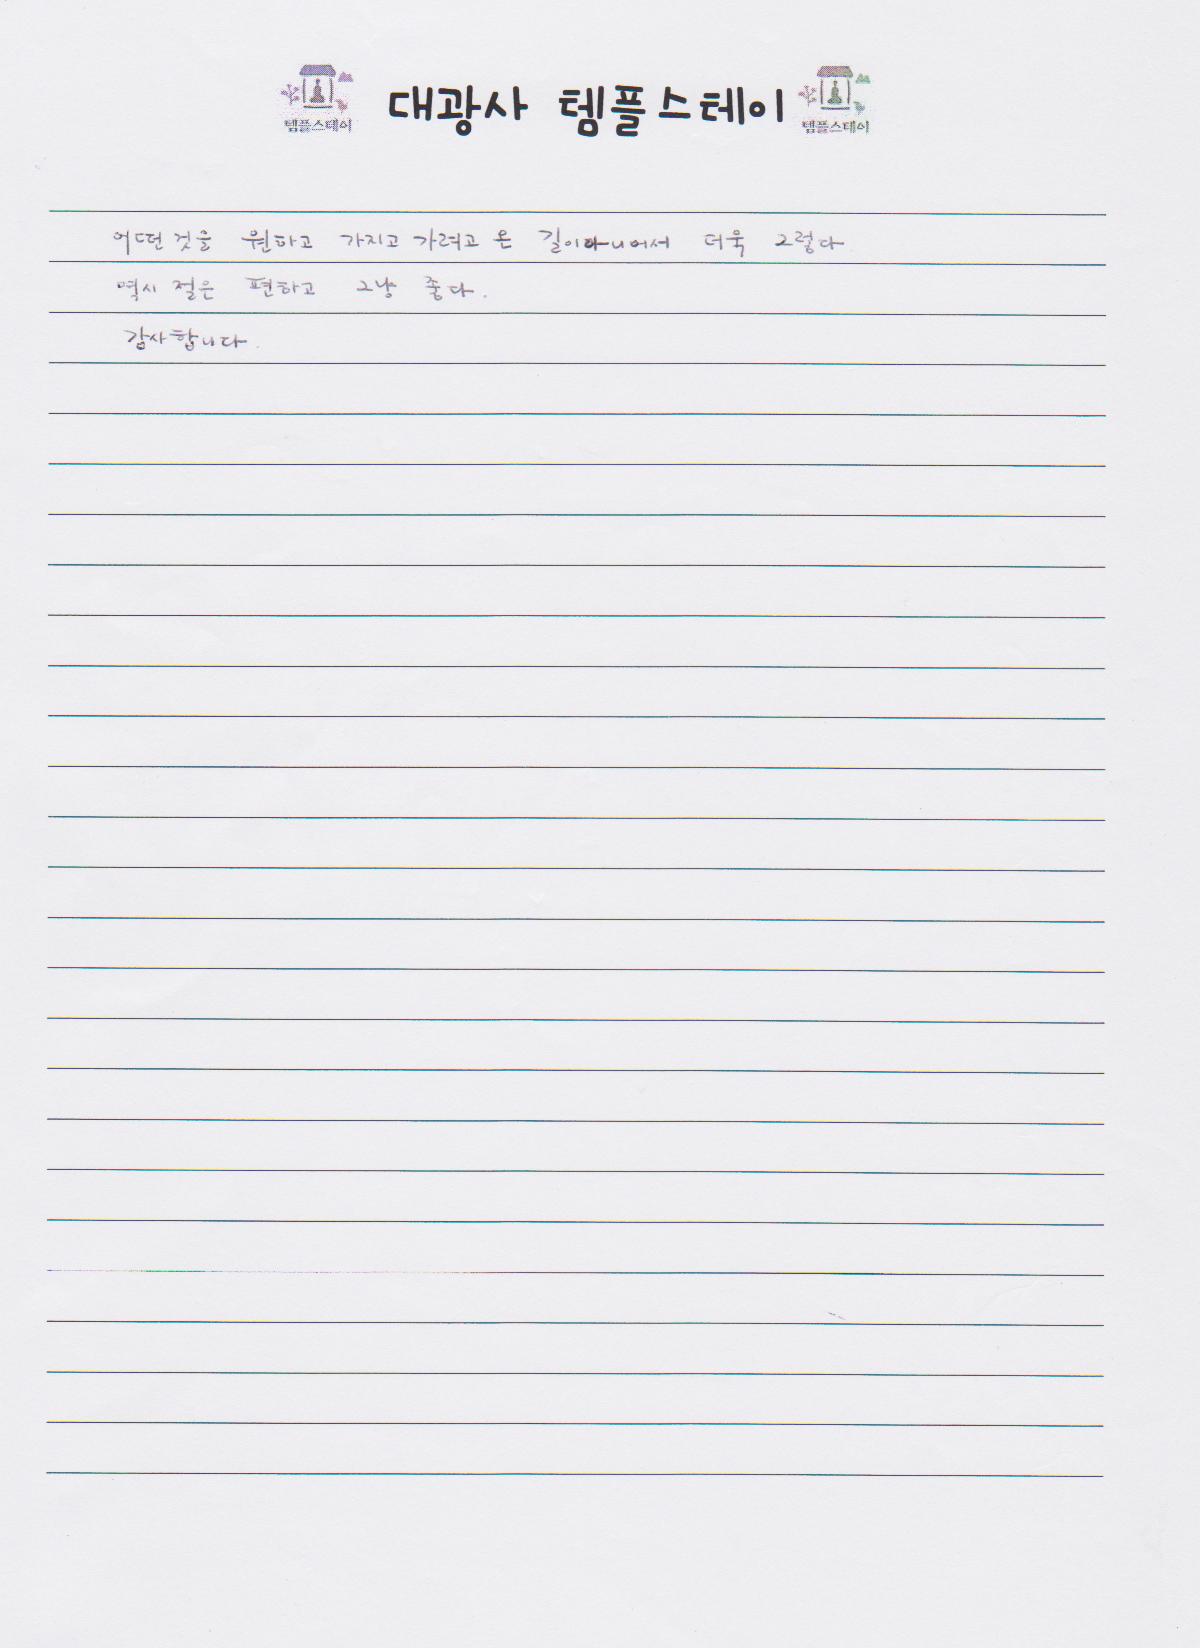 템플스테이 대광사 템플스테이 템플스테이
어떤 것을 원하고 가지고 가려고 온 길이 아니어서 더욱 그렇다
역시 절은 편하고 그냥 좋다.
감사합니다.